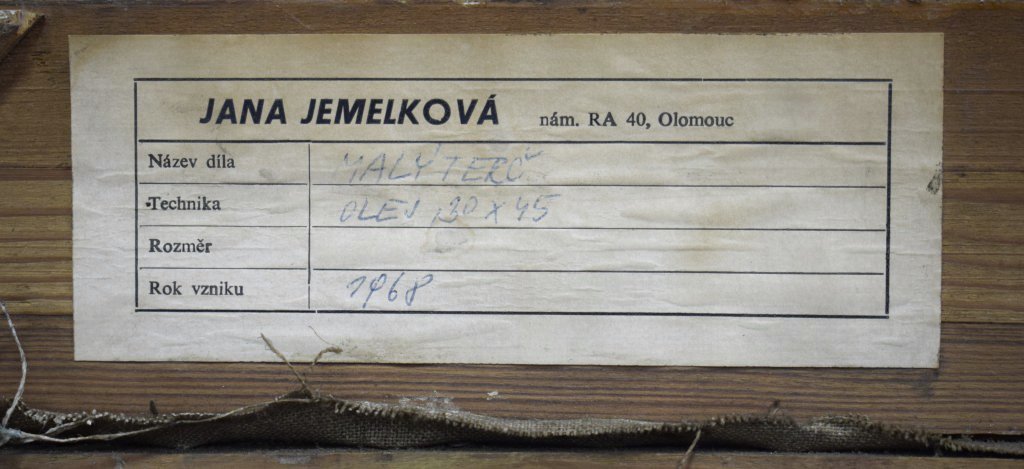 JANA JEMELKOVÁ nám. RA 40, Olomouc
Název díla MALÝ TERČ
Technika OLEJ, 30 x 45
Rozměr
Rok vzniku 1968